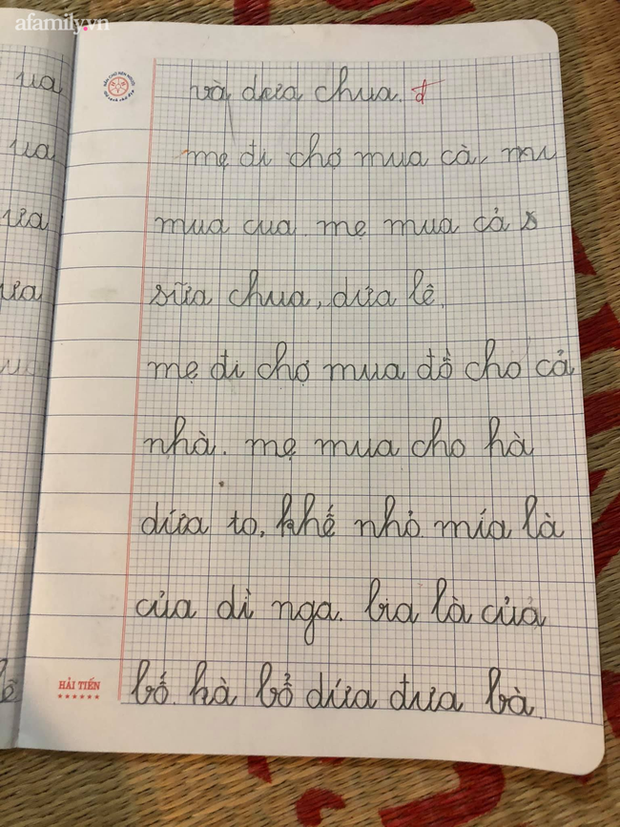 afamily.vn
ua
ua
ưa
ưa
và dưa chua. đ
mẹ đi chợ mua cà, mu
mua cua. mẹ mua cả s
sữa chua, dưa lê.
mẹ đi chợ mua đồ cho cả
nhà. mẹ mua cho hà
dứa to, khế nhỏ. mía là
của dì nga. bia là của
bố. hà bổ dứa đưa bà.
HẢI TIẾN